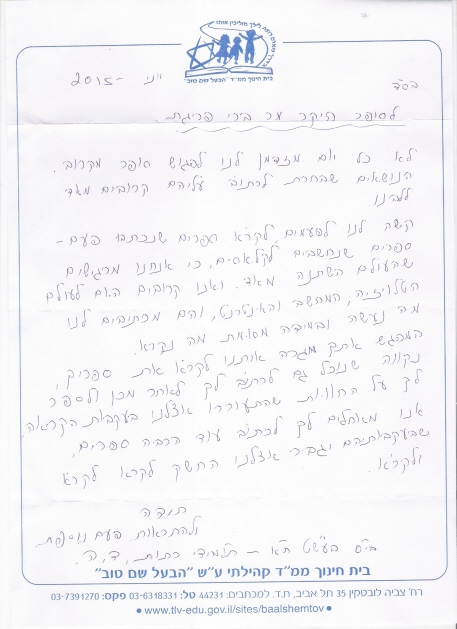 בדרך שאדם רוצה לילך מוליכין אותו
בית חינוך ממ"ד "הבעל שם טוב"
בס"ד
יוני - 2015
לסופר היקר מר גירי פריגת.
לא כל יום מזדמן לנו לפגוש סופר מקרוב.
הנושאים שבחרת לכתוב עליהם קרובים מאד
ללבנו.
קשה לנו לפעמים לקרא ספרים שנכתבו פעם -
ספרים שנחשבים לקלאסים, כי אנחנו מרגישים
שהעולם השתנה מאד. ואנו קרובים היום לעולם
הטלויזיה, המחשב והאינטרנט, והם מכתיבים לנו
מה נעשה ובמידה מסוימת מה נקרא.
המפגש אתך מגרה אותנו לקרא את ספריך,
נקווה שנוכל גם לכתוב לך לאחר מכן ולספר
לך על החוויות שהתעוררו אצלנו בעקבות הקריאה.
אנו מאחלים לך לכתוב עוד הרבה ספרים,
שבעקבותיהם יגביר אצלנו החשק לקרא לקרא
ולקרא.
תודה
ולהתראות פעם נוספת
בי"ס בעש"ט ת"א - תלמידי כתות, ד, ה.
בית חינוך ממ"ד קהילתי ע"ש "הבעל שם טוב"
רח' צביה לובטקין 35 תל אביב, ת.ד. למכתבים: 44231 טל: 03-6318331 פקס: 03-7391270
• www.tlv-edu.gov.il/sites/baalshemtov •